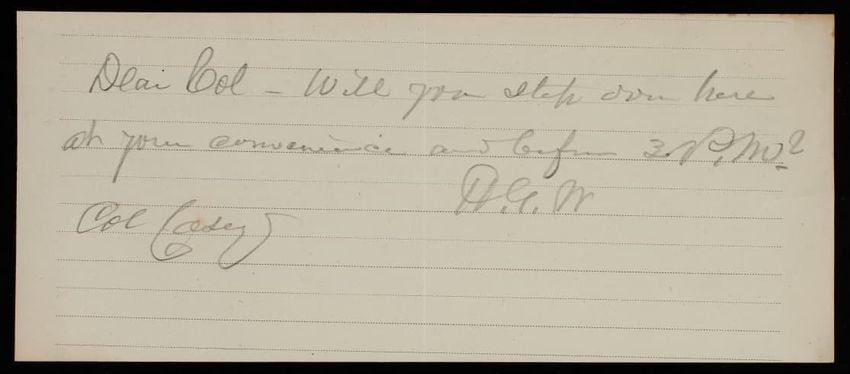 Dear Col – Will you step over here
at your convenience and before 3. P.M.?
H.G.W
Col Casey